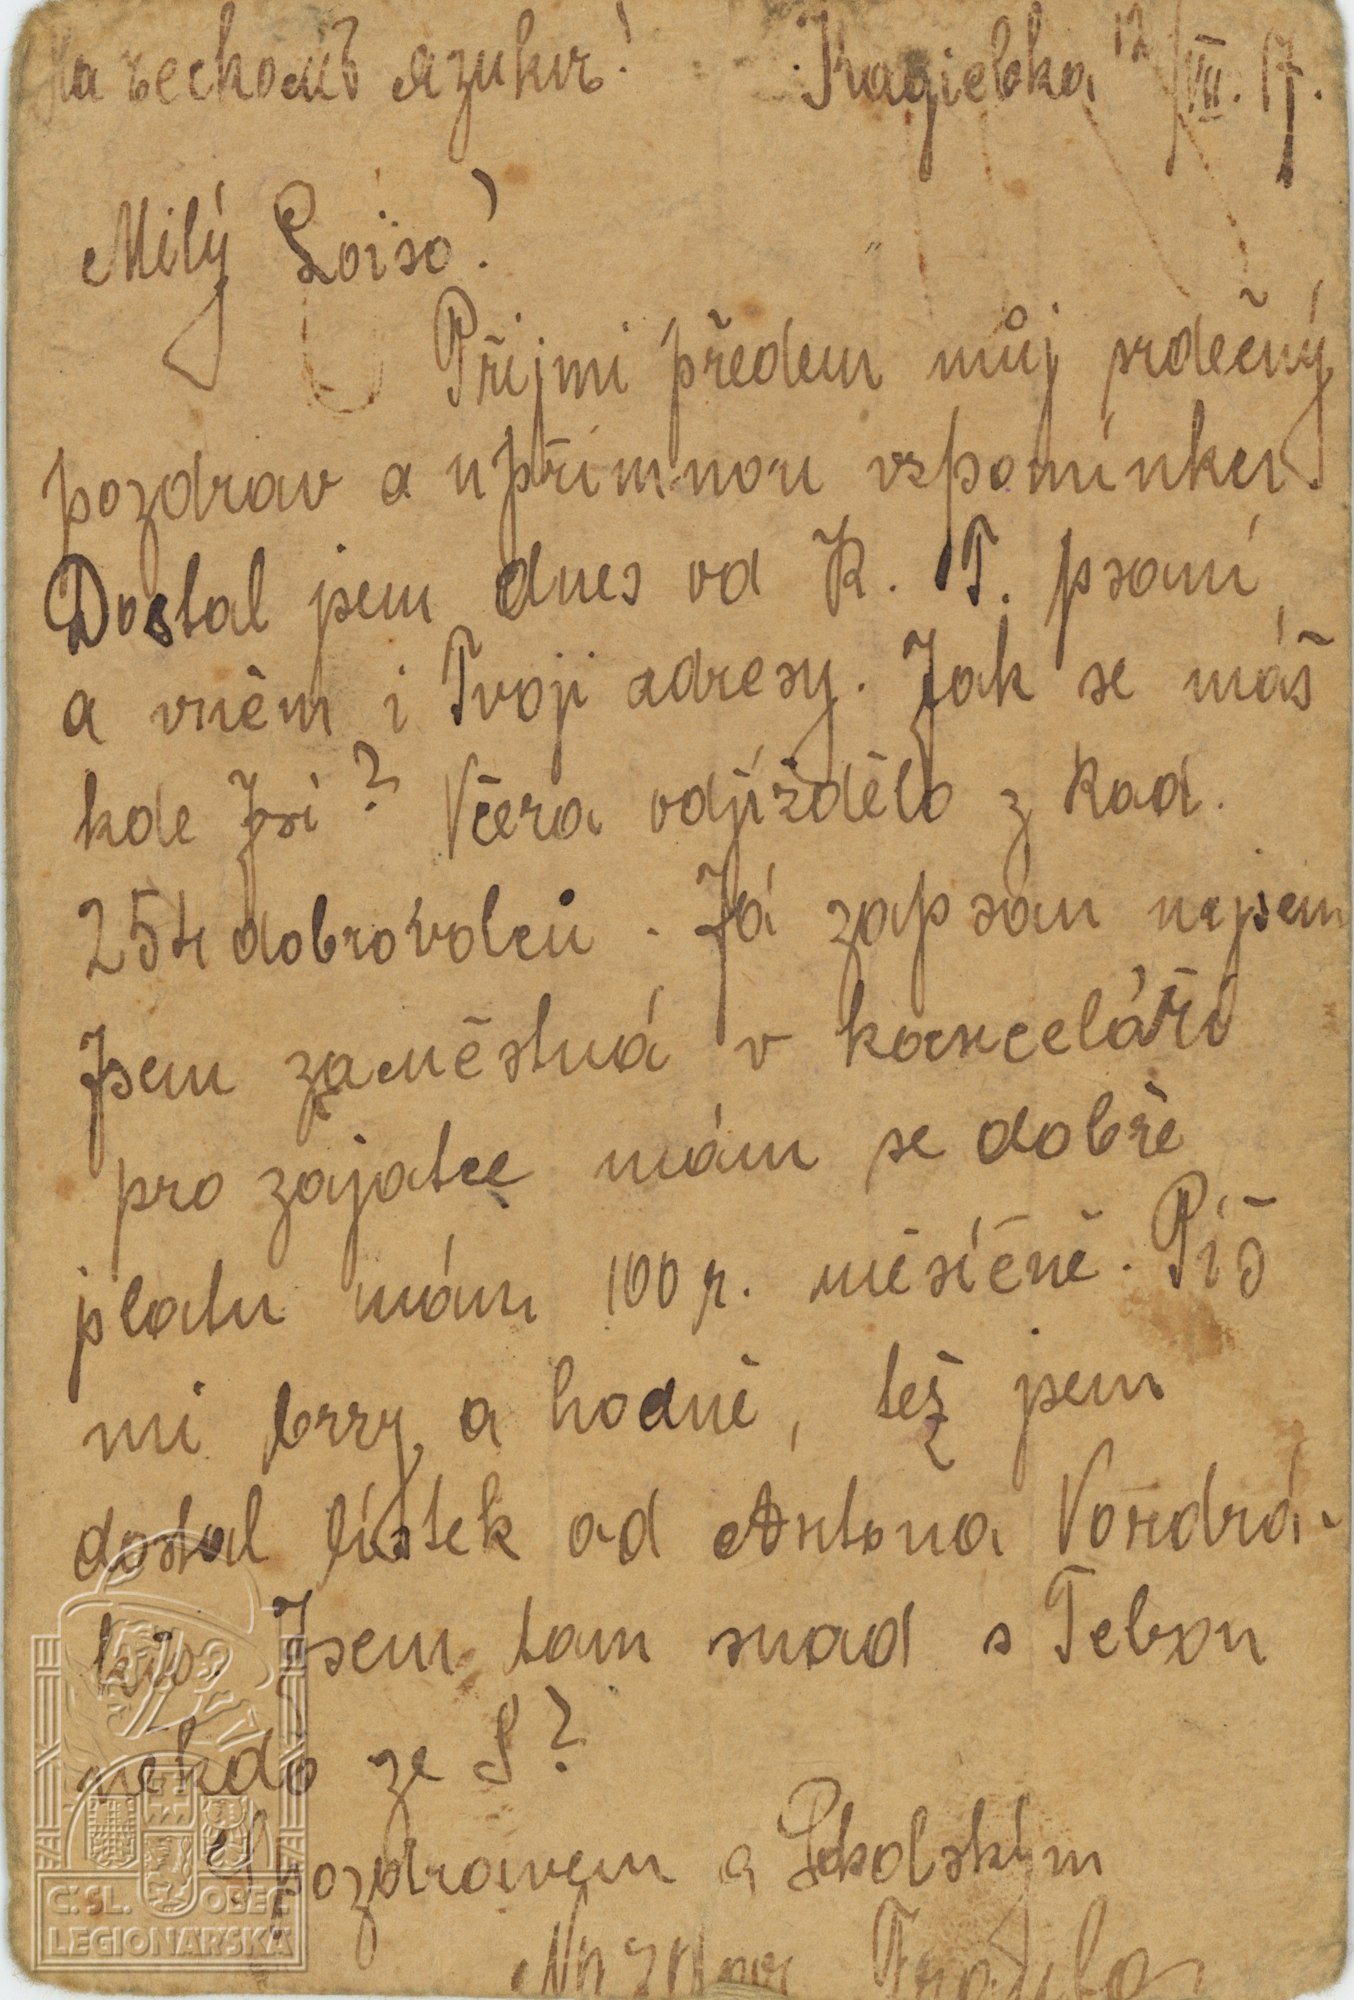 На ческомъ язику! Kragiebka 12/VII. 17.
Milý Loiso!
Přijmi předem můj srdečný
pozdrav a upřímnou vzpomínku
Dostal jsem dnes od K. T. psaní,
a vněm i Tvoji adresy. Jak se máš
kde Jsi? Včera odjíždělo z Kad.
254 dobrovolců. Já zapsan nejsem
Jsem zaměstná v kanceláři
pro zajatce mám se dobře
platu mám 100 r. měsíčně. Piš
mi brzy a hodně, též jsem
dostal lístek od Antona Vondrá-
ka. Jsem tam snad s Tebou
někdo ze S?
S pozdravem a Sokolským
Nazdar
Č. SL. OBEC
LEGIONÁŘSKÁ